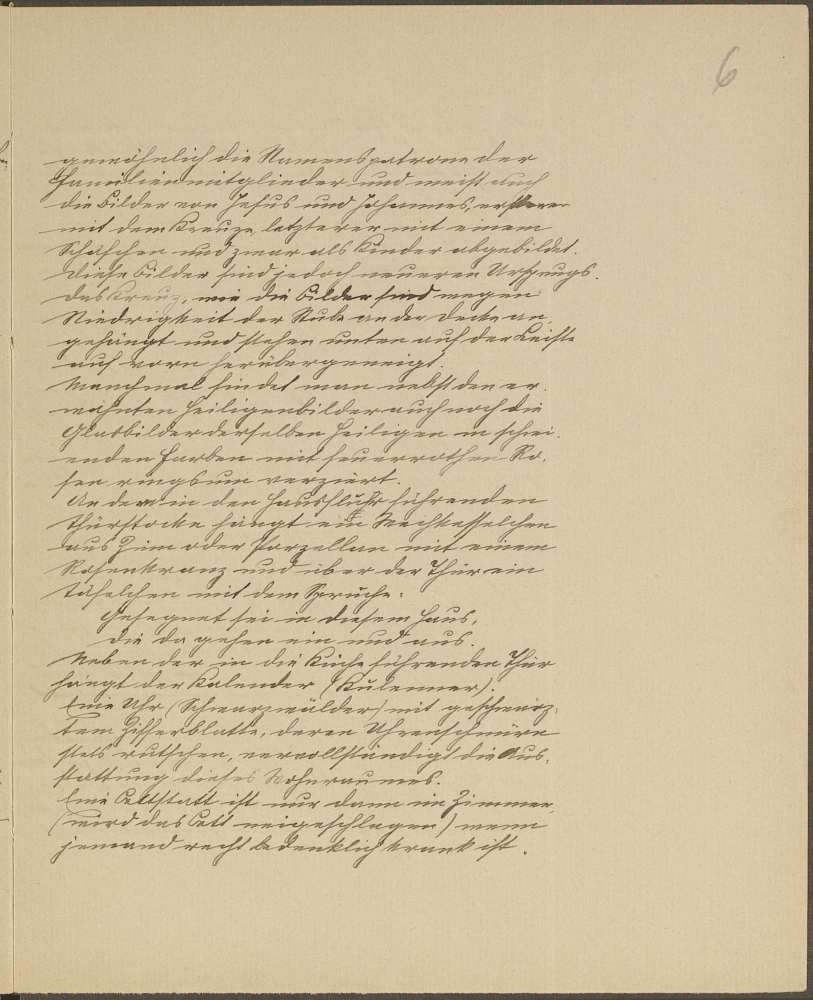 6
gewöhnlich die Namenspatrone der
Familienmitglieder und meist auch
die Bilder von Jesus und Johannes, ersterer
mit dem Kreuze, letzterer mit einem
Schäfchen und zwar als Kinder abgebildet.
Diese Bilder sind jedoch neueren Ursprungs.
Das Kreuz, wie die Bilder sind wegen
Niedrigkeit der Stube an der Decke an
gehängt und stehen unten auf der Leiste
auf vorn herübergeneigt.
Manchmal findet man nebst den er
wähnten Heiligenbilder auch noch die
Glasbilder derselben Heiligen in schrei
enden Farben mit feuerrothen Ro
sen ringsum verziert.
An dem in den Hausflur führenden
Thürstocke hängt ein Weihkesselchen
aus Zinn oder Porzellan mit einem
Rosenkranz und über der Thür ein
Täfelchen mit dem Spruche:
Gesegnet sei in diesem Haus,
die da gehen ein und aus.
Neben der in die Küche führenden Thür
hängt der Kalender (Kulenner).
Eine Uhr (Schwarzwälder) mit geschwärz
tem Zifferblatte, deren Uhrenschnüre
stets rutschen, vervollständigt die Aus
stattung dieses Wohnraumes.
Eine Bettstatt ist nur dann im Zimmer
(wird das Bett neigeschlagen) wenn
jemand recht bedenklich krank ist.